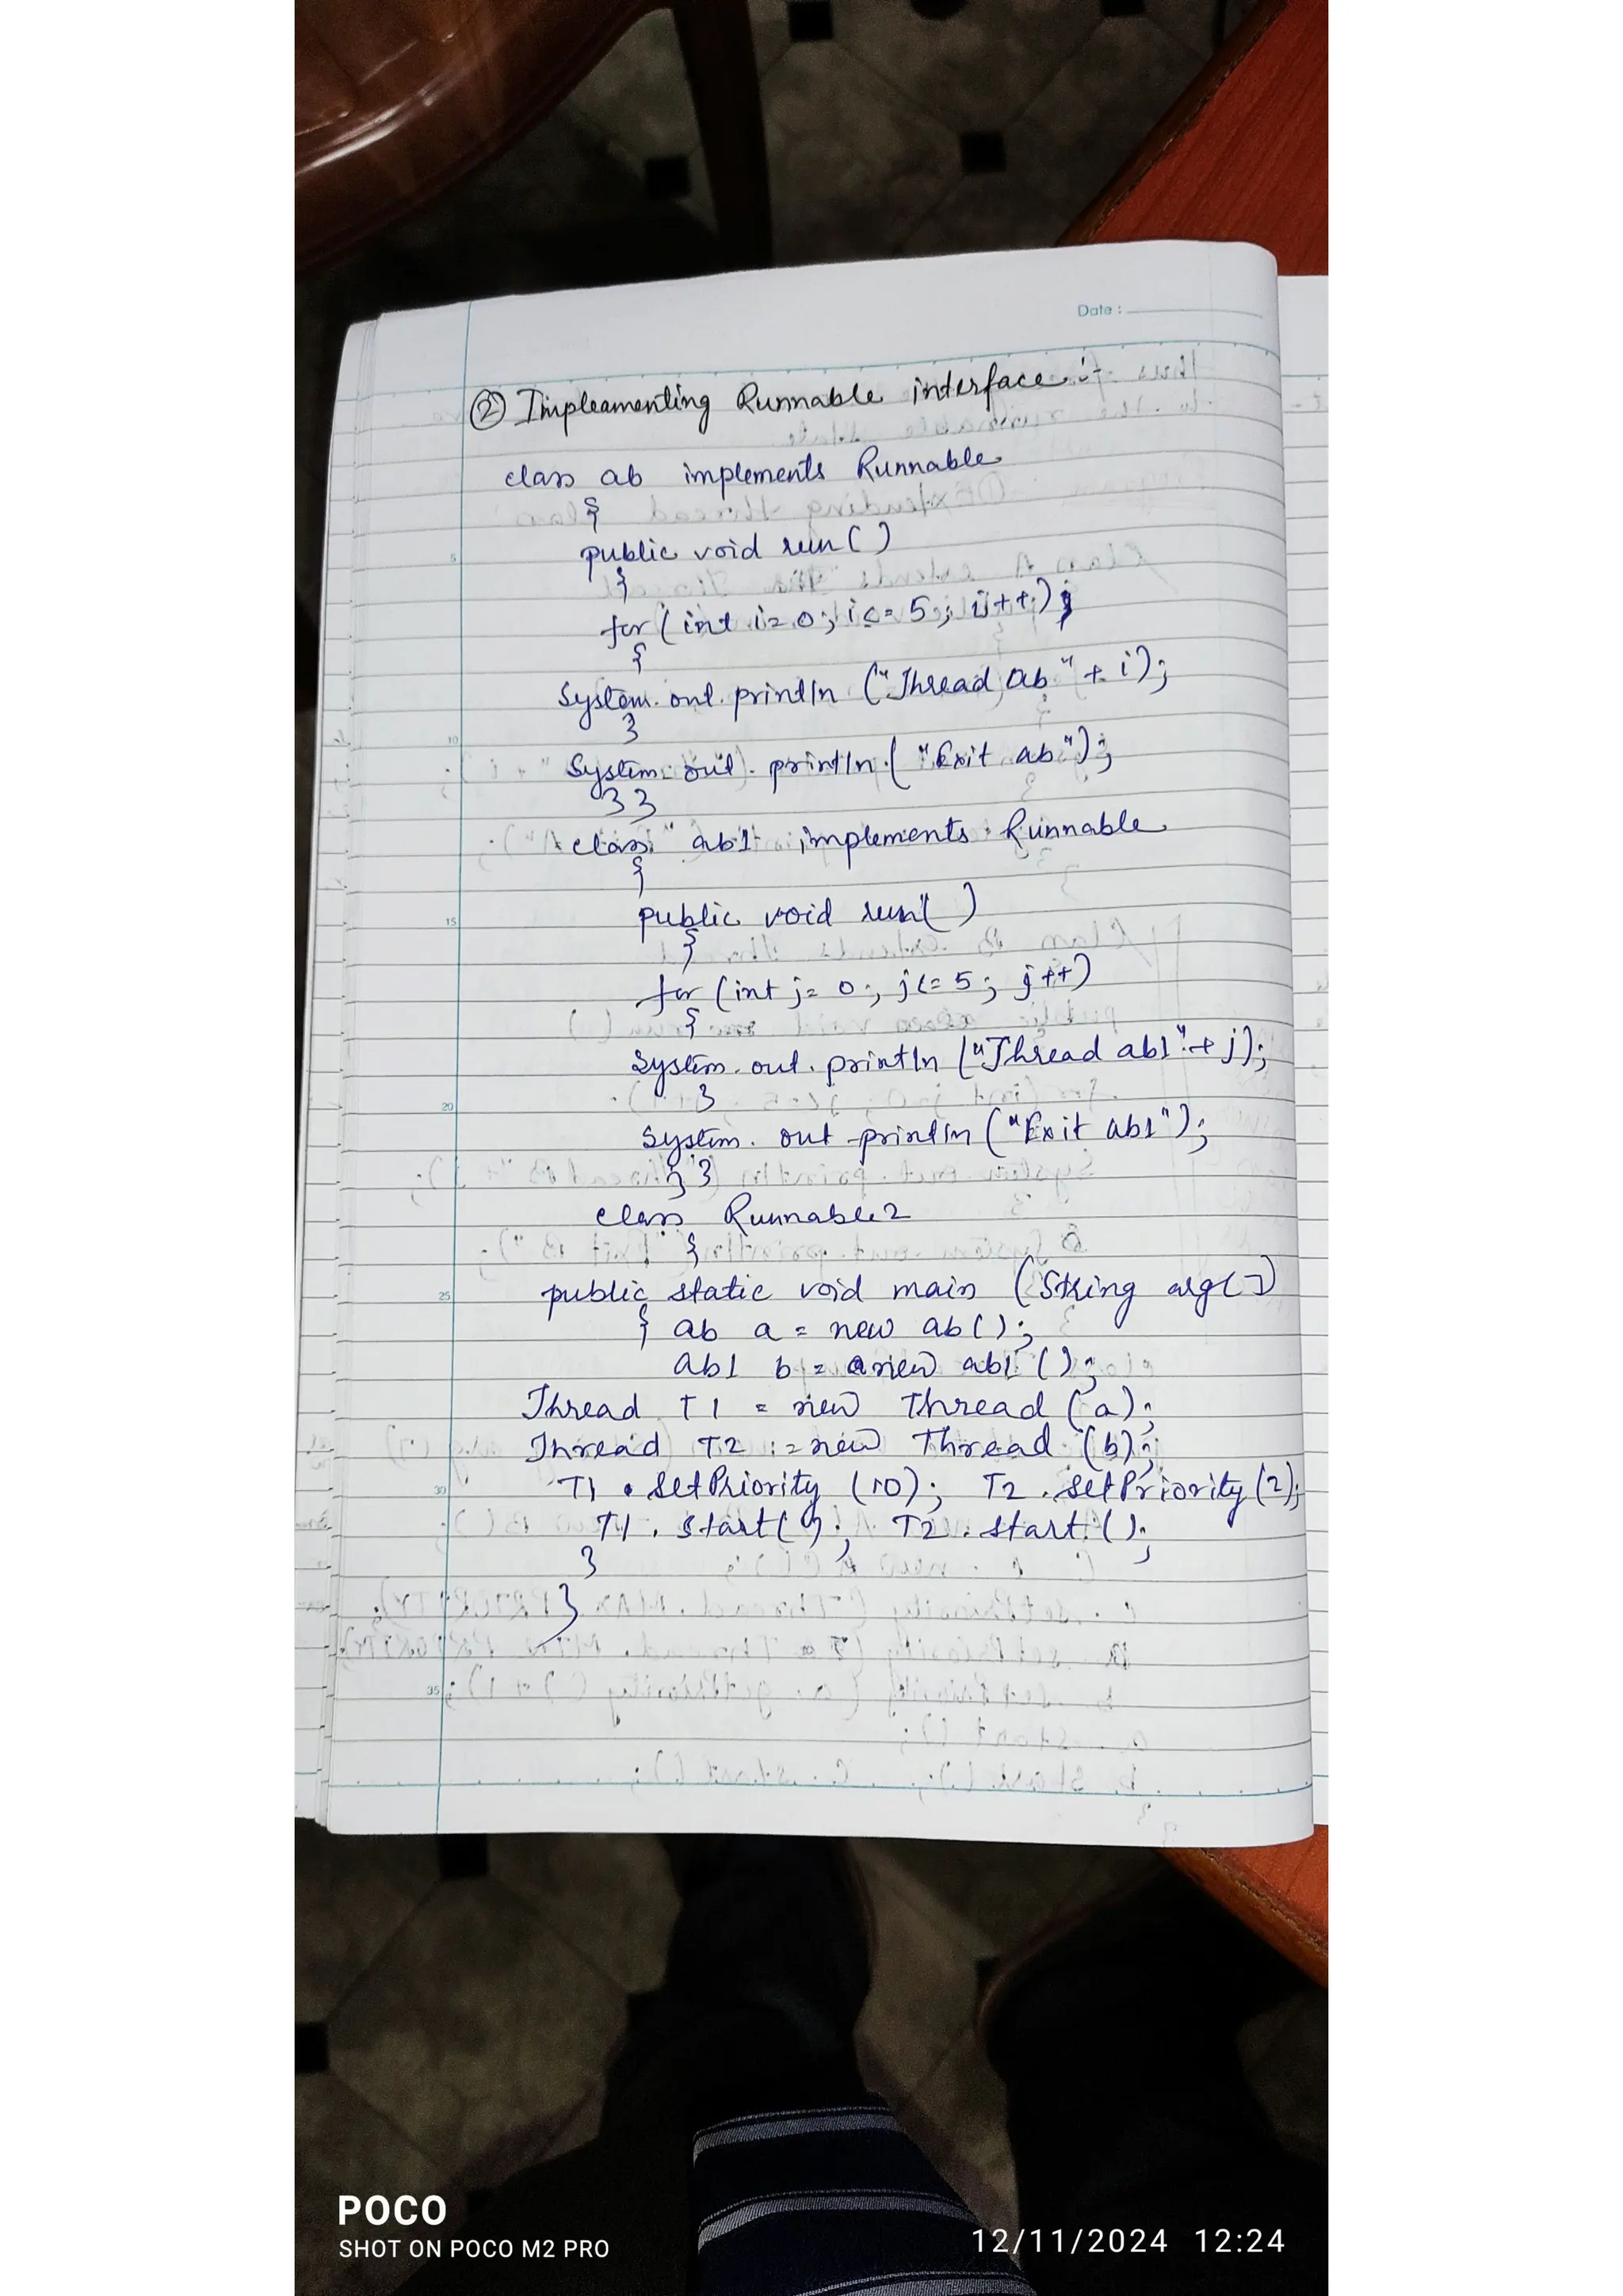 Date :
② Impleamenting Runnable interface :-
class ab implements Runnable
{
public void run()
{
for (int i=0; i<=5; i++);
{
System.out.println ("Thread ab" + i);
}
System.out.println ("Exit ab");
}}
class ab1 implements Runnable
{
public void run()
{
for (int j=0; j<=5; j++)
{
System.out.println ("Thread ab1"+ j);
}
System.out.println ("Exit ab1");
}}
class Runnable2
{
public static void main (String arg[]
{ ab a = new ab();
ab1 b = new ab1();
Thread T1 = new Thread (a);
Thread T2 = new Thread (b);
T1.setPriority (10); T2.setPriority(2);
T1.start(); T2.start();
}
}
5
10
15
20
25
30
35
POCO
SHOT ON POCO M2 PRO
12/11/2024 12:24